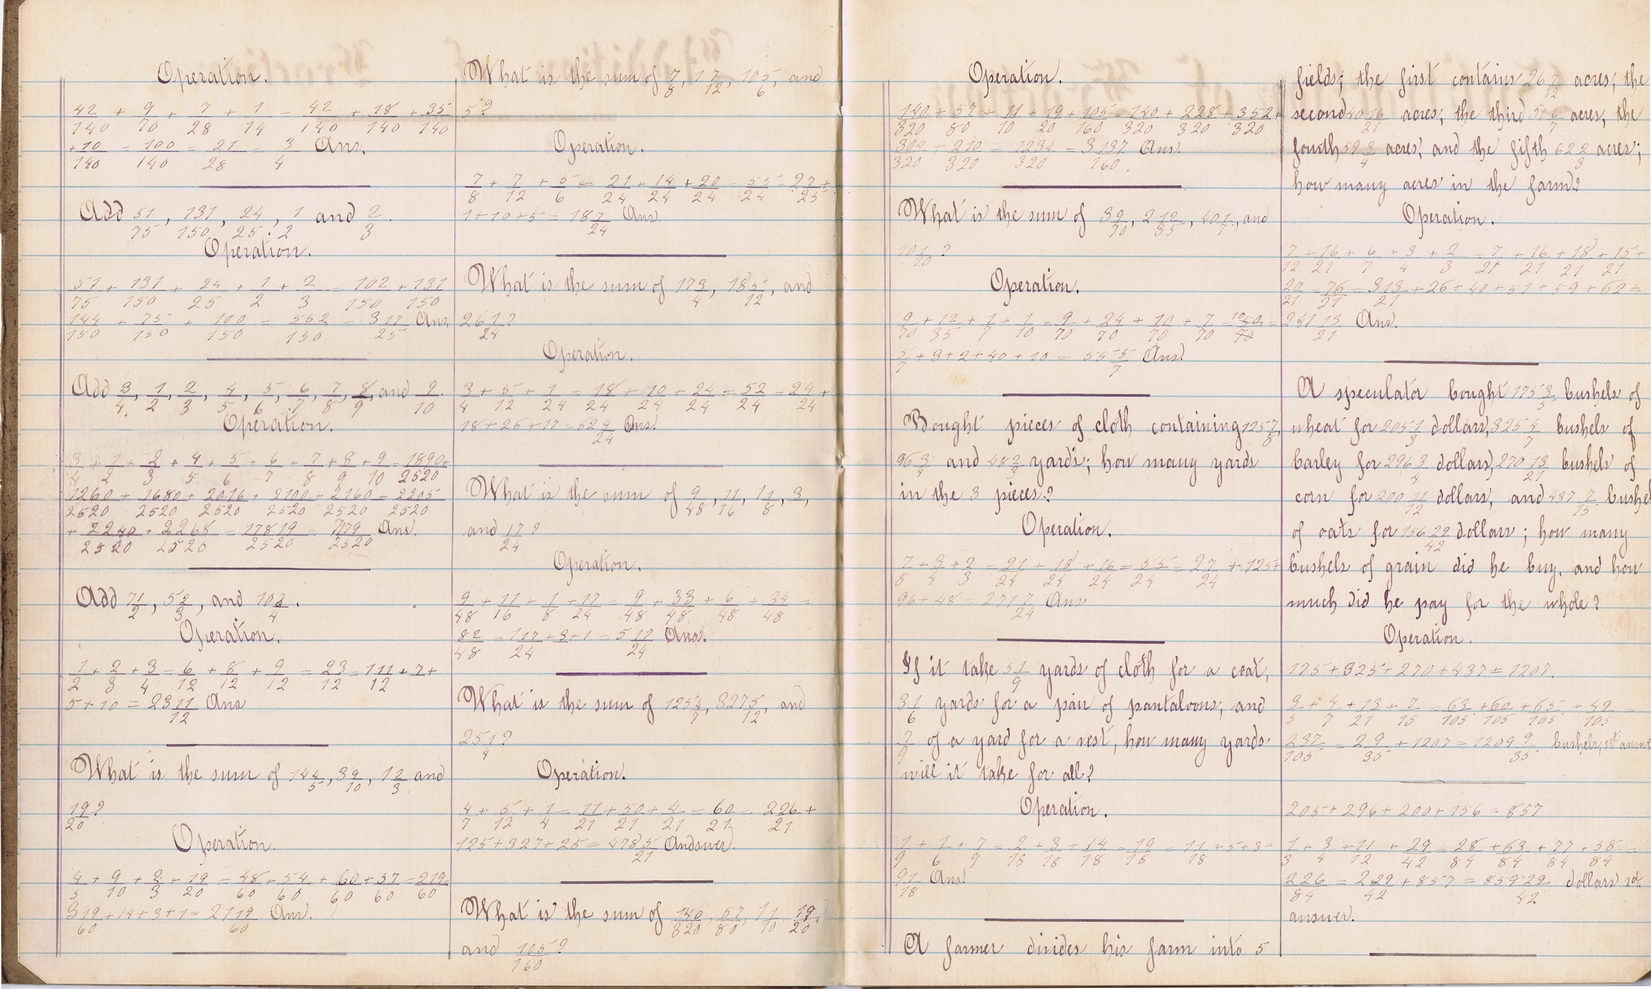 Operation.
42/140 + 9/70 + 7/28 + 1/14 = 42/140 + 18/140 + 35/140
+ 10/140 = 100/140 = 21/28 = 3/4 Ans.
Add 51/75, 131/150, 24/25, 1/2 and 2/3.
Operation.
51/75 + 131/150 + 24/25 + 1/2 + 2/3 = 102/150 + 131/150
144/150 + 75/150 + 100/150 = 562/150 = 3 17/25 Ans
Add 3/4, 1/2, 2/3, 4/5, 5/6, 6/7, 7/8, 8/9, and 9/10.
Operation.
3/4 + 1/2 + 2/3 + 4/5 + 5/6 + 6/7 + 7/8 + 8/9 + 9/10 = 1890/2520 +
1260/2520 + 1680/2520 + 2016/2520 + 2100/2520 + 2160/2520 + 2205/2520
+ 2240/2520 + 2268/2520 = 17819/2520 = Ans.
Add 7 1/2, 5 2/3, and 10 3/4.
Operation.
1/2 + 2/3 + 3/4 = 6/12 + 8/12 + 9/12 = 23/12 = 1 11/12 + 7 +
5 + 10 = 23 11/12 Ans
What is the sum of 14 4/5, 3 9/10, 1 2/3 and
19/20?
Operation.
4/5 + 9/10 + 2/3 + 19/20 = 48/60 + 54/60 + 40/60 + 57/60 = 219/60
3 19/60 + 14 + 3 + 1 = 21 19/60 Ans.
What is the sum of 7/8, 1 7/12, 10 5/6, and
5?
Operation.
7/8 + 7/12 + 5/6 = 21/24 + 14/24 + 20/24 = 55/24 = 2 7/25 +
1 + 10 + 5 = 18 7/24 Ans
What is the sum of 17 3/4, 18 5/12, and
26 1/24?
Operation.
3/4 + 5/12 + 1/24 = 18/24 + 10/24 + 24/24 = 52/24 = 2 4/24 +
18 + 26 + 17 = 62 4/24 Ans.
What is the sum of 9/48, 11/16, 1 1/8, 3,
and 17/24?
Operation.
9/48 + 11/16 + 1/8 + 17/24 = 9/48 + 33/48 + 6/48 + 34/48 =
82/48 = 1 17/24 + 3 + 1 = 5 17/24 Ans.
What is the sum of 125 4/7, 327 5/12, and
25 1/4?
Operation.
4/7 + 5/12 + 1/4 = 11/21 + 50/21 + 4/21 = 60/21 = 2 26/21 +
125 + 327 + 25 = 478 5/21 Andswer.
What is the sum of 140/320, 57/80, 11/10, 19/20,
and 105/160?
Operation.
140/320 + 57/80 + 11/10 + 19/20 + 105/160 = 140/320 + 228/320 + 352/320 +
304/320 + 210/320 = 1234/320 = 3 137/160 Ans.
What is the sum of 3 9/70, 2 12/35, 40 1/7, and
10 1/10?
Operation.
9/70 + 12/35 + 1/7 + 1/10 = 9/70 + 24/70 + 10/70 + 7/70 =
5/7 + 3 + 2 + 40 + 10 = 55 5/7 Ans.
Bought pieces of cloth containing 125 7/8,
96 3/4 and 48 2/3 yards; how many yards
in the 3 pieces?
Operation.
7/8 + 3/4 + 2/3 = 21/24 + 18/24 + 16/24 = 55/24 = 2 7/24 + 125 +
96 + 48 = 271 7/24 Ans.
If it take 5 1/9 yards of cloth for a coat,
3 1/6 yards for a pair of pantaloons; and
7/9 of a yard for a vest, how many yards
will it take for all?
Operation.
1/9 + 1/6 + 7/9 = 2/18 + 3/18 + 14/18 = 19/18 = 1 1/18 + 5 + 3 =
9 1/18 Ans.
A farmer divides his farm into 5
fields; the first contains 26 7/12 acres; the
second 40 16/21 acres; the third 51 6/7 acres, the
fourth 59 3/4 acres; and the fifth 62 2/3 acres;
how many acres in the farm?
Operation.
7/12 + 16/21 + 6/7 + 3/4 + 2/3 = 7/21 + 16/21 + 18/21 + 15/21 +
20/21 = 76/21 = 3 13/21 + 26 + 40 + 51 + 59 + 62 =
241 13/21 Ans.
A speculator bought 175 3/5 bushels of
wheat for 205 1/3 dollars, 325 4/7 bushels of
barley for 296 3/4 dollars, 270 13/21 bushels of
corn for 200 11/12 dollars, and 437 7/15 bushel
of oats for 156 29/42 dollars; how many
bushels of grain did he buy, and how
much did he pay for the whole?
Operation.
175 + 325 + 270 + 437 = 1207.
3/5 + 4/7 + 13/21 + 7/15 = 63/105 + 60/105 + 65/105 + 49/105 =
237/105 = 2 9/35 + 1207 = 1209 9/35 bushels, 1st answ
205 + 296 + 200 + 156 = 857
1/3 + 3/4 + 11/12 + 29/42 = 28/84 + 63/84 + 77/84 + 58/84 =
226/84 = 2 29/42 + 857 = 859 29/42 dollars 2d
answer.